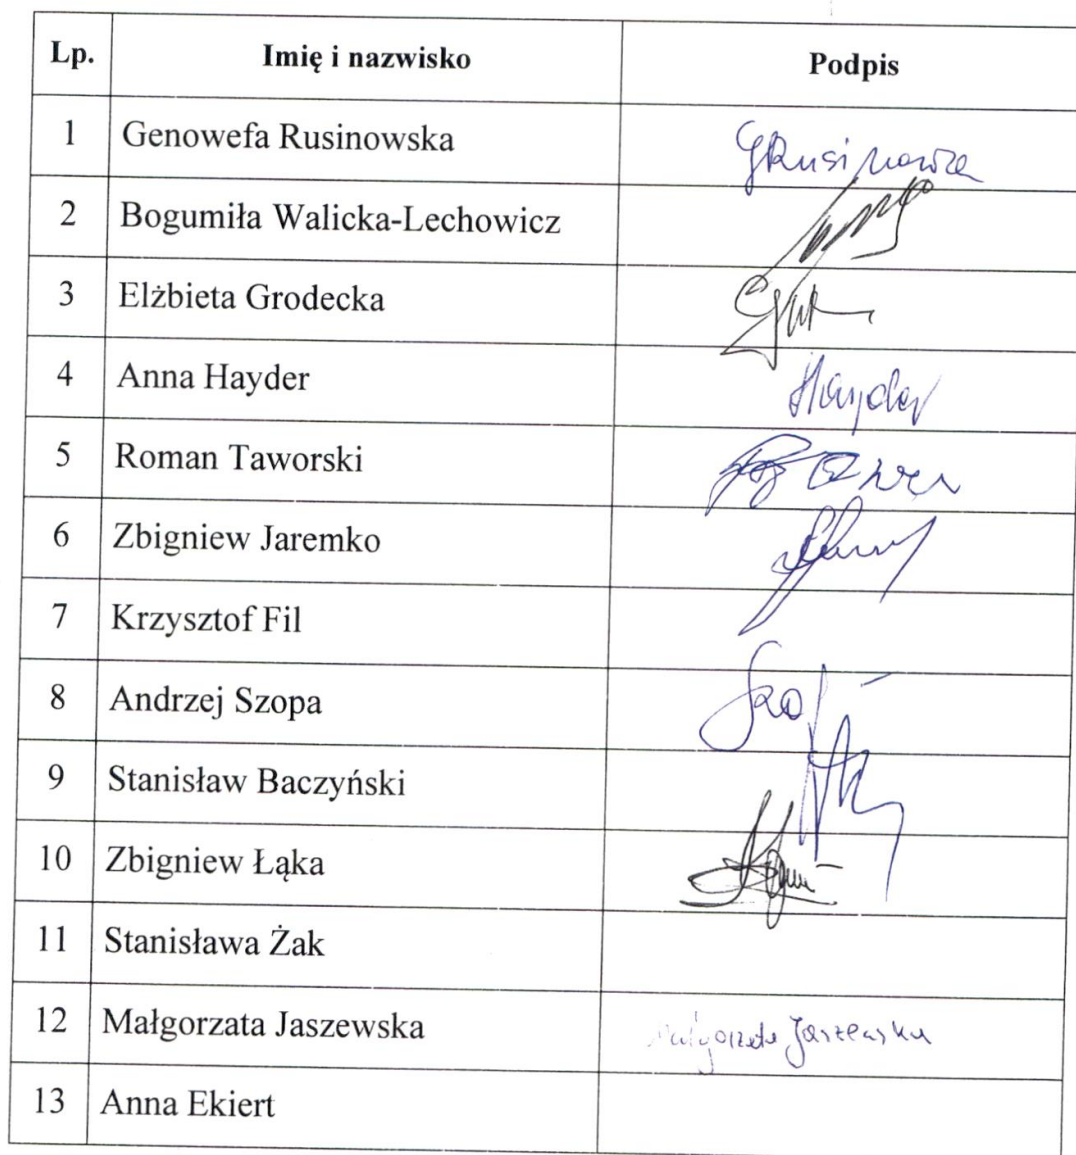 Lp. Imię i nazwisko Podpis
1 Genowefa Rusinowska
2 Bogumiła Walicka-Lechowicz
3 Elżbieta Grodecka
4 Anna Hayder Hayder
5 Roman Taworski
6 Zbigniew Jaremko
7 Krzysztof Fil
8 Andrzej Szopa
9 Stanisław Baczyński
10 Zbigniew Łąka
11 Stanisława Żak
12 Małgorzata Jaszewska Małgorzata Jaszewska
13 Anna Ekiert